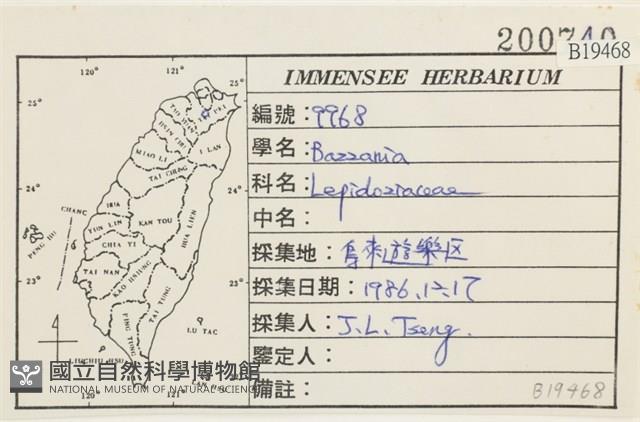 200740
B19468
IMMENSEE HERBARIUM
編號：9968
學名：Bazzania
科名：Lepidoziaceae
中名：
採集地：烏來遊樂区
採集日期：1986.12.17
採集人：J.L. Tseng.
鑒定人：
備註：
B19468
120°
121°
25°
25°
24°
24°
23°
23°
I LAN
MIAO LI
TAI CHUNG
CHANG
KAN TOU
HUA LIEN
YUN LIN
PENG HU
CHIA YI
TAI NAN
KAO HSIUNG
TAI TUNG
PING TUNG
LU TAC
LIUCHIU HSU
國立自然科學博物館
NATIONAL MUSEUM OF NATURAL SCIENCE
120°
121°